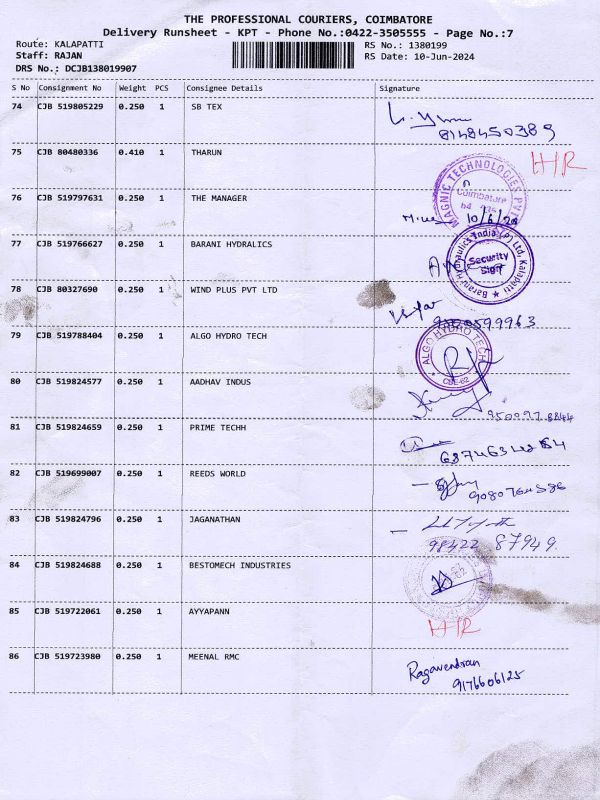 THE PROFESSIONAL COURIERS, COIMBATORE
Delivery Runsheet - KPT - Phone No.:0422-3505555 - Page No.:7
Route: KALAPATTI
RS No.: 1380199
Staff: RAJAN
RS Date: 10-Jun-2024
DRS No.: DCJB138019907
S No Consignment No Weight PCS Consignee Details Signature
74 CJB 519805229 0.250 1 SB TEX
8148450389
75 CJB 80480336 0.410 1 THARUN H/R
76 CJB 519797631 0.250 1 THE MANAGER
MAGNIC TECHNOLOGIES PVT
Coimbatore
10/6/24
77 CJB 519766627 0.250 1 BARANI HYDRALICS
Barani Hydraulics India (P) Ltd, Kalapatti
Security
Sign
78 CJB 80327690 0.250 1 WIND PLUS PVT LTD
79 CJB 519788404 0.250 1 ALGO HYDRO TECH
ALGO HYDRO TECH
CBE-62
80 CJB 519824577 0.250 1 AADHAV INDUS
81 CJB 519824659 0.250 1 PRIME TECHH
82 CJB 519699007 0.250 1 REEDS WORLD
9080764586
83 CJB 519824796 0.250 1 JAGANATHAN
98422 87949
84 CJB 519824688 0.250 1 BESTOMECH INDUSTRIES
85 CJB 519722061 0.250 1 AYYAPANN
H/R
86 CJB 519723980 0.250 1 MEENAL RMC
Ragavendran
9176606125